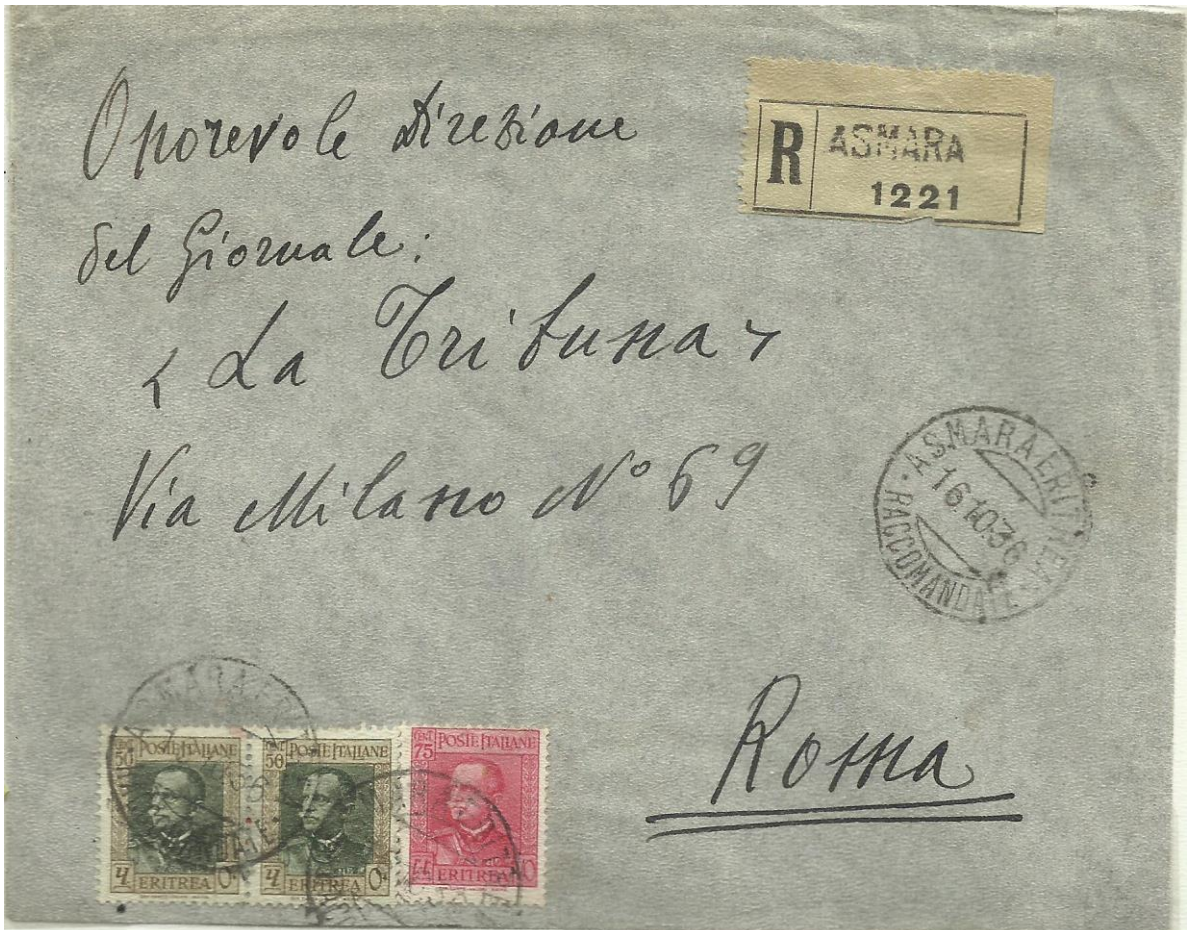 Onorevole Direzione
del Giornale:
< La Tribuna >
Via Milano N° 69
Roma
R ASMARA
1221
ASMARA ERITREA
16.10.36
RACCOMANDATE
CENT 50 POSTE ITALIANE
ERITREA
CENT 50 POSTE ITALIANE
ERITREA
CENT 75 POSTE ITALIANE
ERITREA